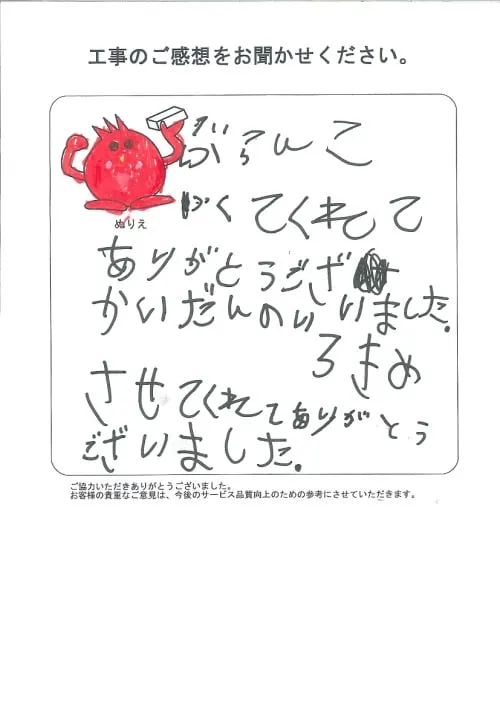 工事のご感想をお聞かせください。
ぶらんこ
くてくれてて
ぬりえ
ありがとうござ
かいだんのいいました。
ろきめ
させてくれてて ありがとう
ございました。
ご協力いただきありがとうございました。
お客様の貴重なご意見は、今後のサービス品質向上のための参考にさせていただきます。